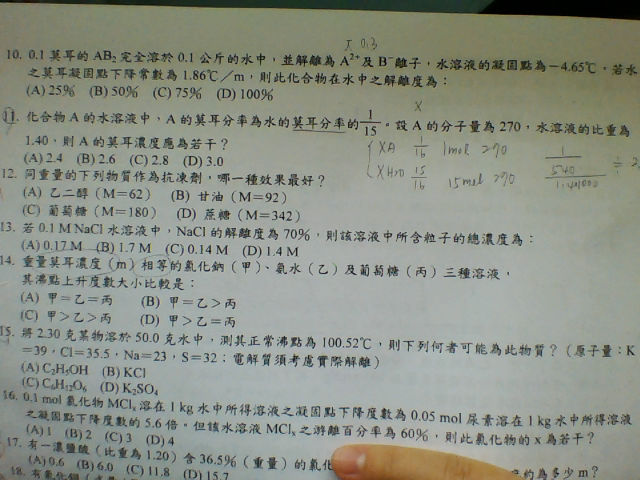 10. 0.1 莫耳的 AB₂ 完全溶於 0.1 公斤的水中，並解離為 A²⁺ 及 B⁻ 離子，水溶液的凝固點為－4.65℃，若水
之莫耳凝固點下降常數為 1.86℃／m，則此化合物在水中之解離度為：
(A) 25% (B) 50% (C) 75% (D) 100%
11. 化合物 A 的水溶液中，A 的莫耳分率為水的莫耳分率的 1/15。設 A 的分子量為 270，水溶液的比重為
1.40，則 A 的莫耳濃度應為若干？
(A) 2.4 (B) 2.6 (C) 2.8 (D) 3.0
XA 1/16 1mol 270
XH₂O 15/16 15mol 270
12. 同重量的下列物質作為抗凍劑，哪一種效果最好？
(A) 乙二醇（M＝62） (B) 甘油（M＝92）
(C) 葡萄糖（M＝180） (D) 蔗糖（M＝342）
13. 若 0.1 M NaCl 水溶液中，NaCl 的解離度為 70%，則該溶液中所含粒子的總濃度為：
(A) 0.17 M (B) 1.7 M (C) 0.14 M (D) 1.4 M
14. 重量莫耳濃度（m）相等的氯化鈉（甲）、氨水（乙）及葡萄糖（丙）三種溶液，
其沸點上升度數大小比較是：
(A) 甲＝乙＝丙 (B) 甲＝乙＞丙
(C) 甲＞乙＞丙 (D) 甲＞乙＝丙
15. 將 2.30 克某物溶於 50.0 克水中，測其正常沸點為 100.52℃，則下列何者可能為此物質？（原子量：K
＝39，Cl＝35.5，Na＝23，S＝32；電解質須考慮實際解離）
(A) C₂H₅OH (B) KCl
(C) C₆H₁₂O₆ (D) K₂SO₄
16. 0.1 mol 氯化物 MClₓ 溶在 1 kg 水中所得溶液之凝固點下降度數為 0.05 mol 尿素溶在 1 kg 水中所得溶液
之凝固點下降度數的 5.6 倍。但該水溶液 MClₓ 之游離百分率為 60%，則此氯化物的 x 為若干？
(A) 1 (B) 2 (C) 3 (D) 4
17. 有一濃鹽酸（比重為 1.20）含 36.5%（重量）的氯化 約為多少 m？
(A) 0.6 (B) 6.0 (C) 11.8 (D) 15.7
18.